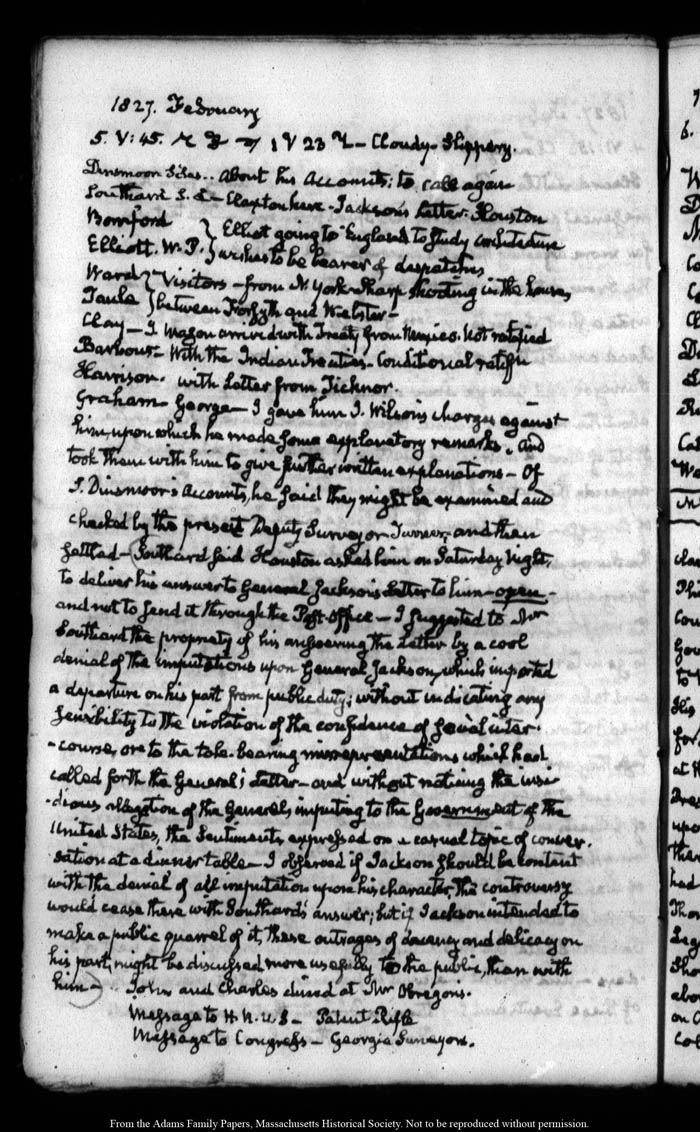 1827. February
5. V:45. 1 V 23 — Cloudy. Slippery.
Dinsmoor Silas.. about his Accounts; to call again
Southard S. L — Clayton here. Jackson's Letter. Houston
Bomford } Elliot going to England to study
Elliott. W. P. } wishes to be bearer of despatches
Ward } Visitors — from N. York. Sharp shooting in the house,
} between Forsyth and Webster —
Clay — I. Mason arrived with Treaty from Mexico. Not ratified
Barbour — With the Indian Treaties. Conditional ratifn
Harrison. with Letter from Ticknor.
Graham — George — I gave him I. Wilson's charges against
him, upon which he made some explanatory remarks. and
took them with him to give further written explanations — Of
S. Dinsmoor's Accounts, he said they might be examined and
checked by the present Deputy Surveyor Turner, and then
settled — Southard said Houston asked him on Saturday Night,
to deliver his answer to General Jackson's Letter to him — open —
and not to send it through the Post-office — I suggested to Mr
Southard the propriety of his answering the Letter by a cool
denial of the imputations upon General Jackson, which imported
a departure on his part from public duty; without indicating any
sensibility to the violation of the confidence of social inter-
-course, or to the tale-bearing misrepresentations which had
called forth the General's Letter — and without noticing the insi-
-dious allegation of the General's imputing to the Government of the
United States, the Sentiments expressed on a casual topic of conver-
sation at a dinner table — I observed if Jackson should be content
with the denial of all imputation upon his character, the controversy
would cease there with Southard's answer; but if Jackson intended to
make a public quarrel of it, these outrages of decency and delicacy on
his part, might be discussed more usefully to the public, than with
him — .. John and Charles dined at Mr Obregon's.
Message to H. R. U S — Patent Rifle
Message to Congress — Georgia Surveyors.
From the Adams Family Papers, Massachusetts Historical Society. Not to be reproduced without permission.